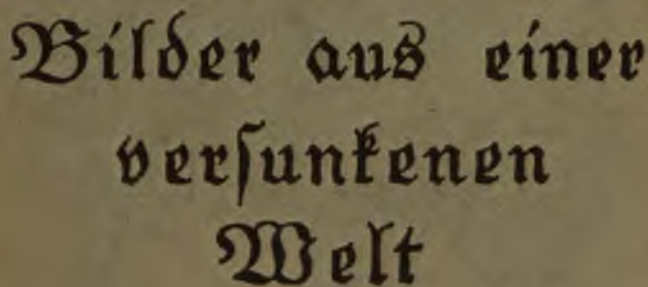 Bilder aus einer
verſunkenen
Welt